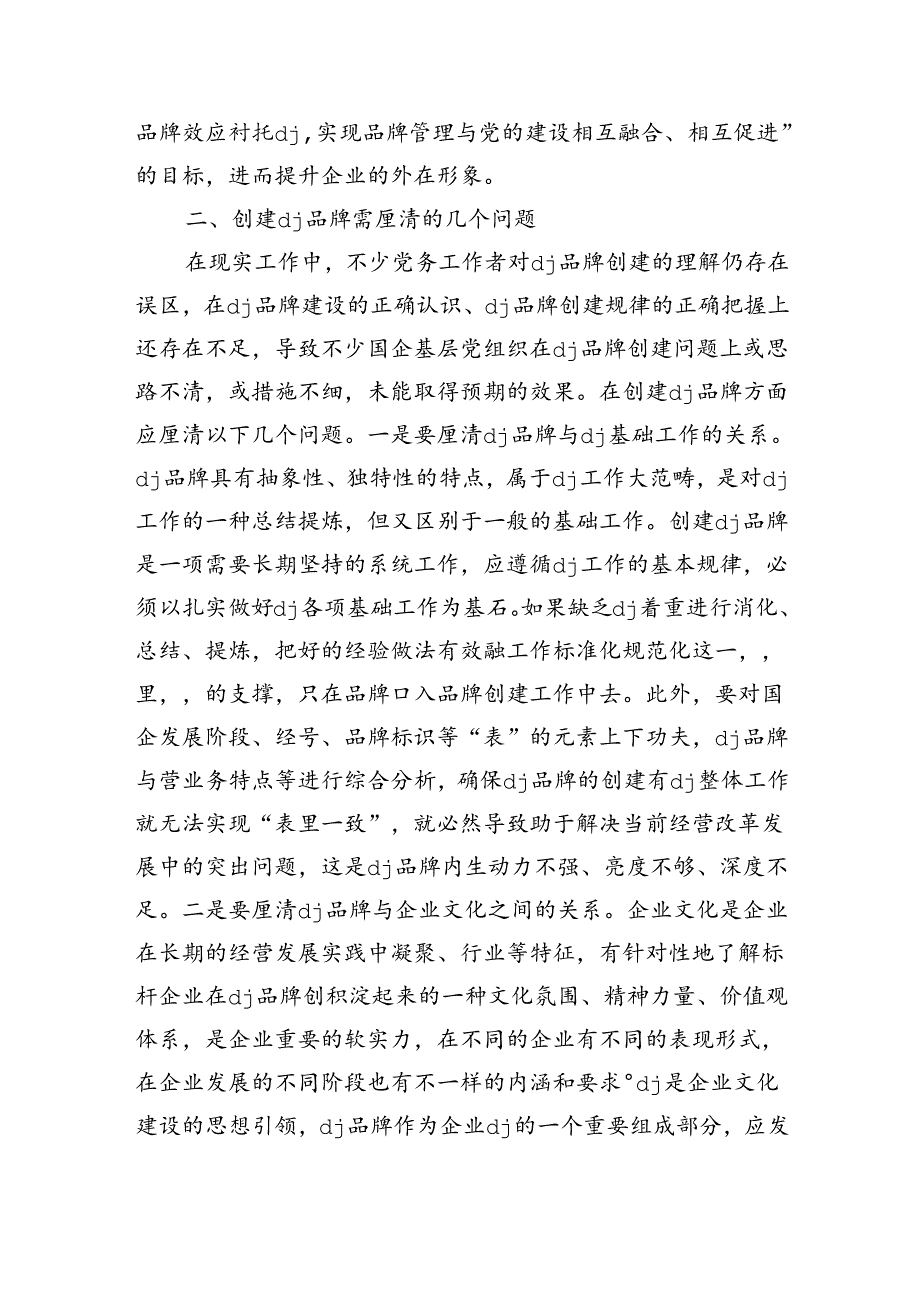 品牌效应衬托dj,实现品牌管理与党的建设相互融合、相互促进”
的目标，进而提升企业的外在形象。
二、创建dj品牌需厘清的几个问题
在现实工作中，不少党务工作者对dj品牌创建的理解仍存在
误区，在dj品牌建设的正确认识、dj品牌创建规律的正确把握上
还存在不足，导致不少国企基层党组织在dj品牌创建问题上或思
路不清，或措施不细，未能取得预期的效果。在创建dj品牌方面
应厘清以下几个问题。一是要厘清dj品牌与dj基础工作的关系。
dj品牌具有抽象性、独特性的特点，属于dj工作大范畴，是对dj
工作的一种总结提炼，但又区别于一般的基础工作。创建dj品牌
是一项需要长期坚持的系统工作，应遵循dj工作的基本规律，必
须以扎实做好dj各项基础工作为基石。如果缺乏dj着重进行消化、
总结、提炼，把好的经验做法有效融工作标准化规范化这一，，
里，，的支撑，只在品牌口入品牌创建工作中去。此外，要对国
企发展阶段、经号、品牌标识等“表”的元素上下功夫，dj品牌
与营业务特点等进行综合分析，确保dj品牌的创建有dj整体工作
就无法实现“表里一致”，就必然导致助于解决当前经营改革发
展中的突出问题，这是dj品牌内生动力不强、亮度不够、深度不
足。二是要厘清dj品牌与企业文化之间的关系。企业文化是企业
在长期的经营发展实践中凝聚、行业等特征，有针对性地了解标
杆企业在dj品牌创积淀起来的一种文化氛围、精神力量、价值观
体系，是企业重要的软实力，在不同的企业有不同的表现形式，
在企业发展的不同阶段也有不一样的内涵和要求°dj是企业文化
建设的思想引领，dj品牌作为企业dj的一个重要组成部分，应发